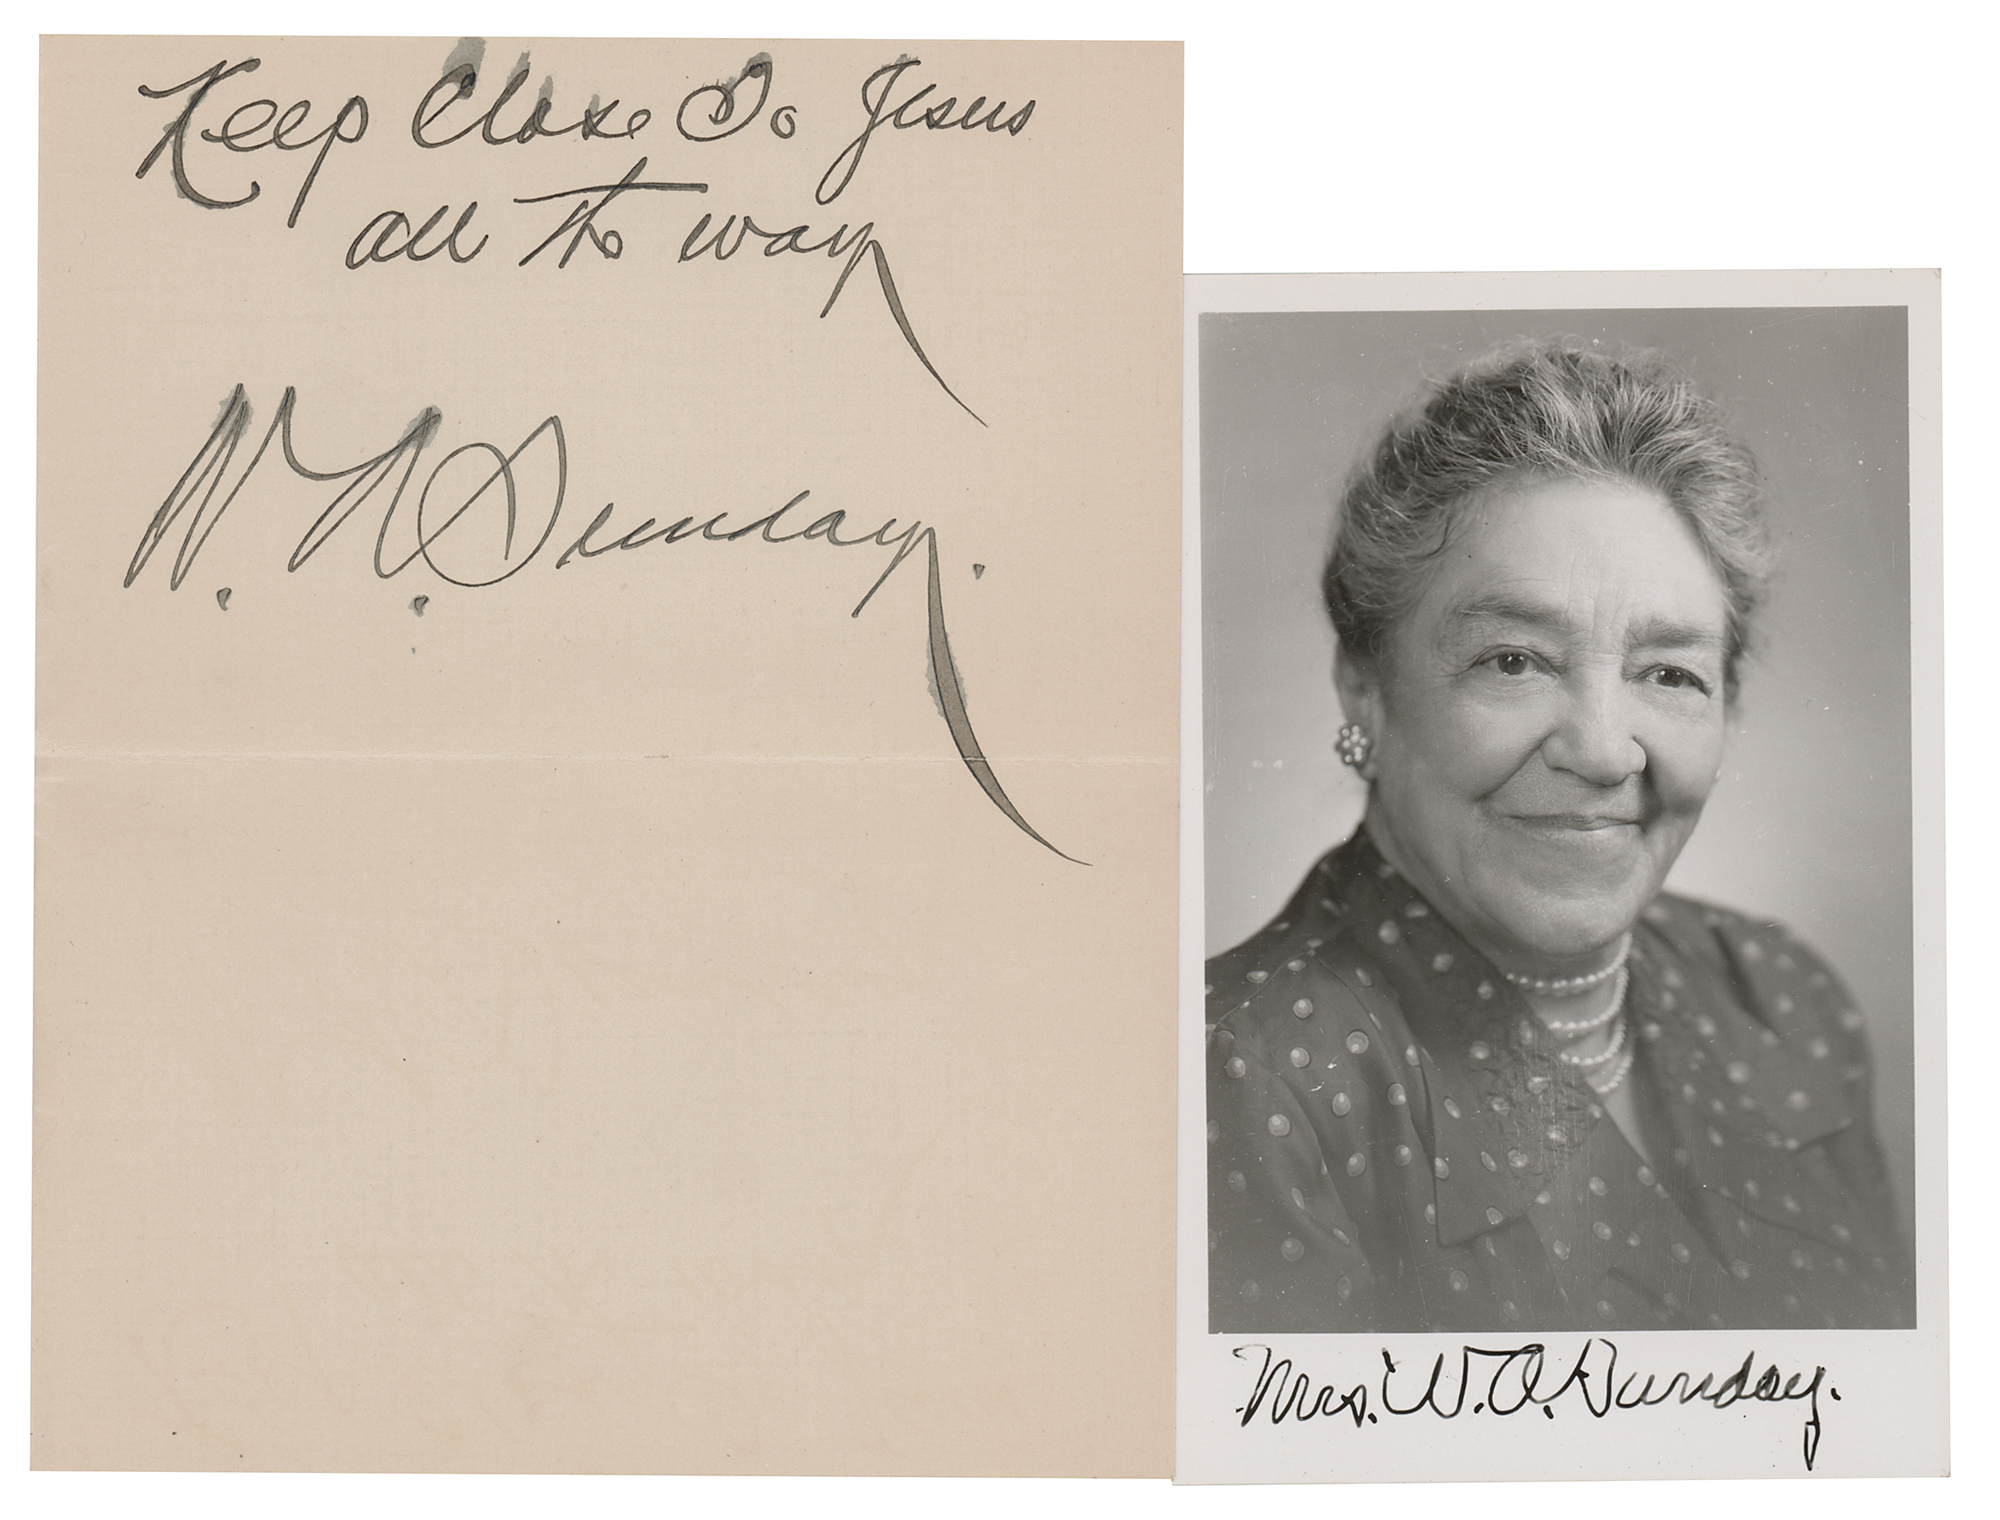 Keep Close To Jesus
all the way
W. A. Sunday.
Mrs. W. A. Sunday.